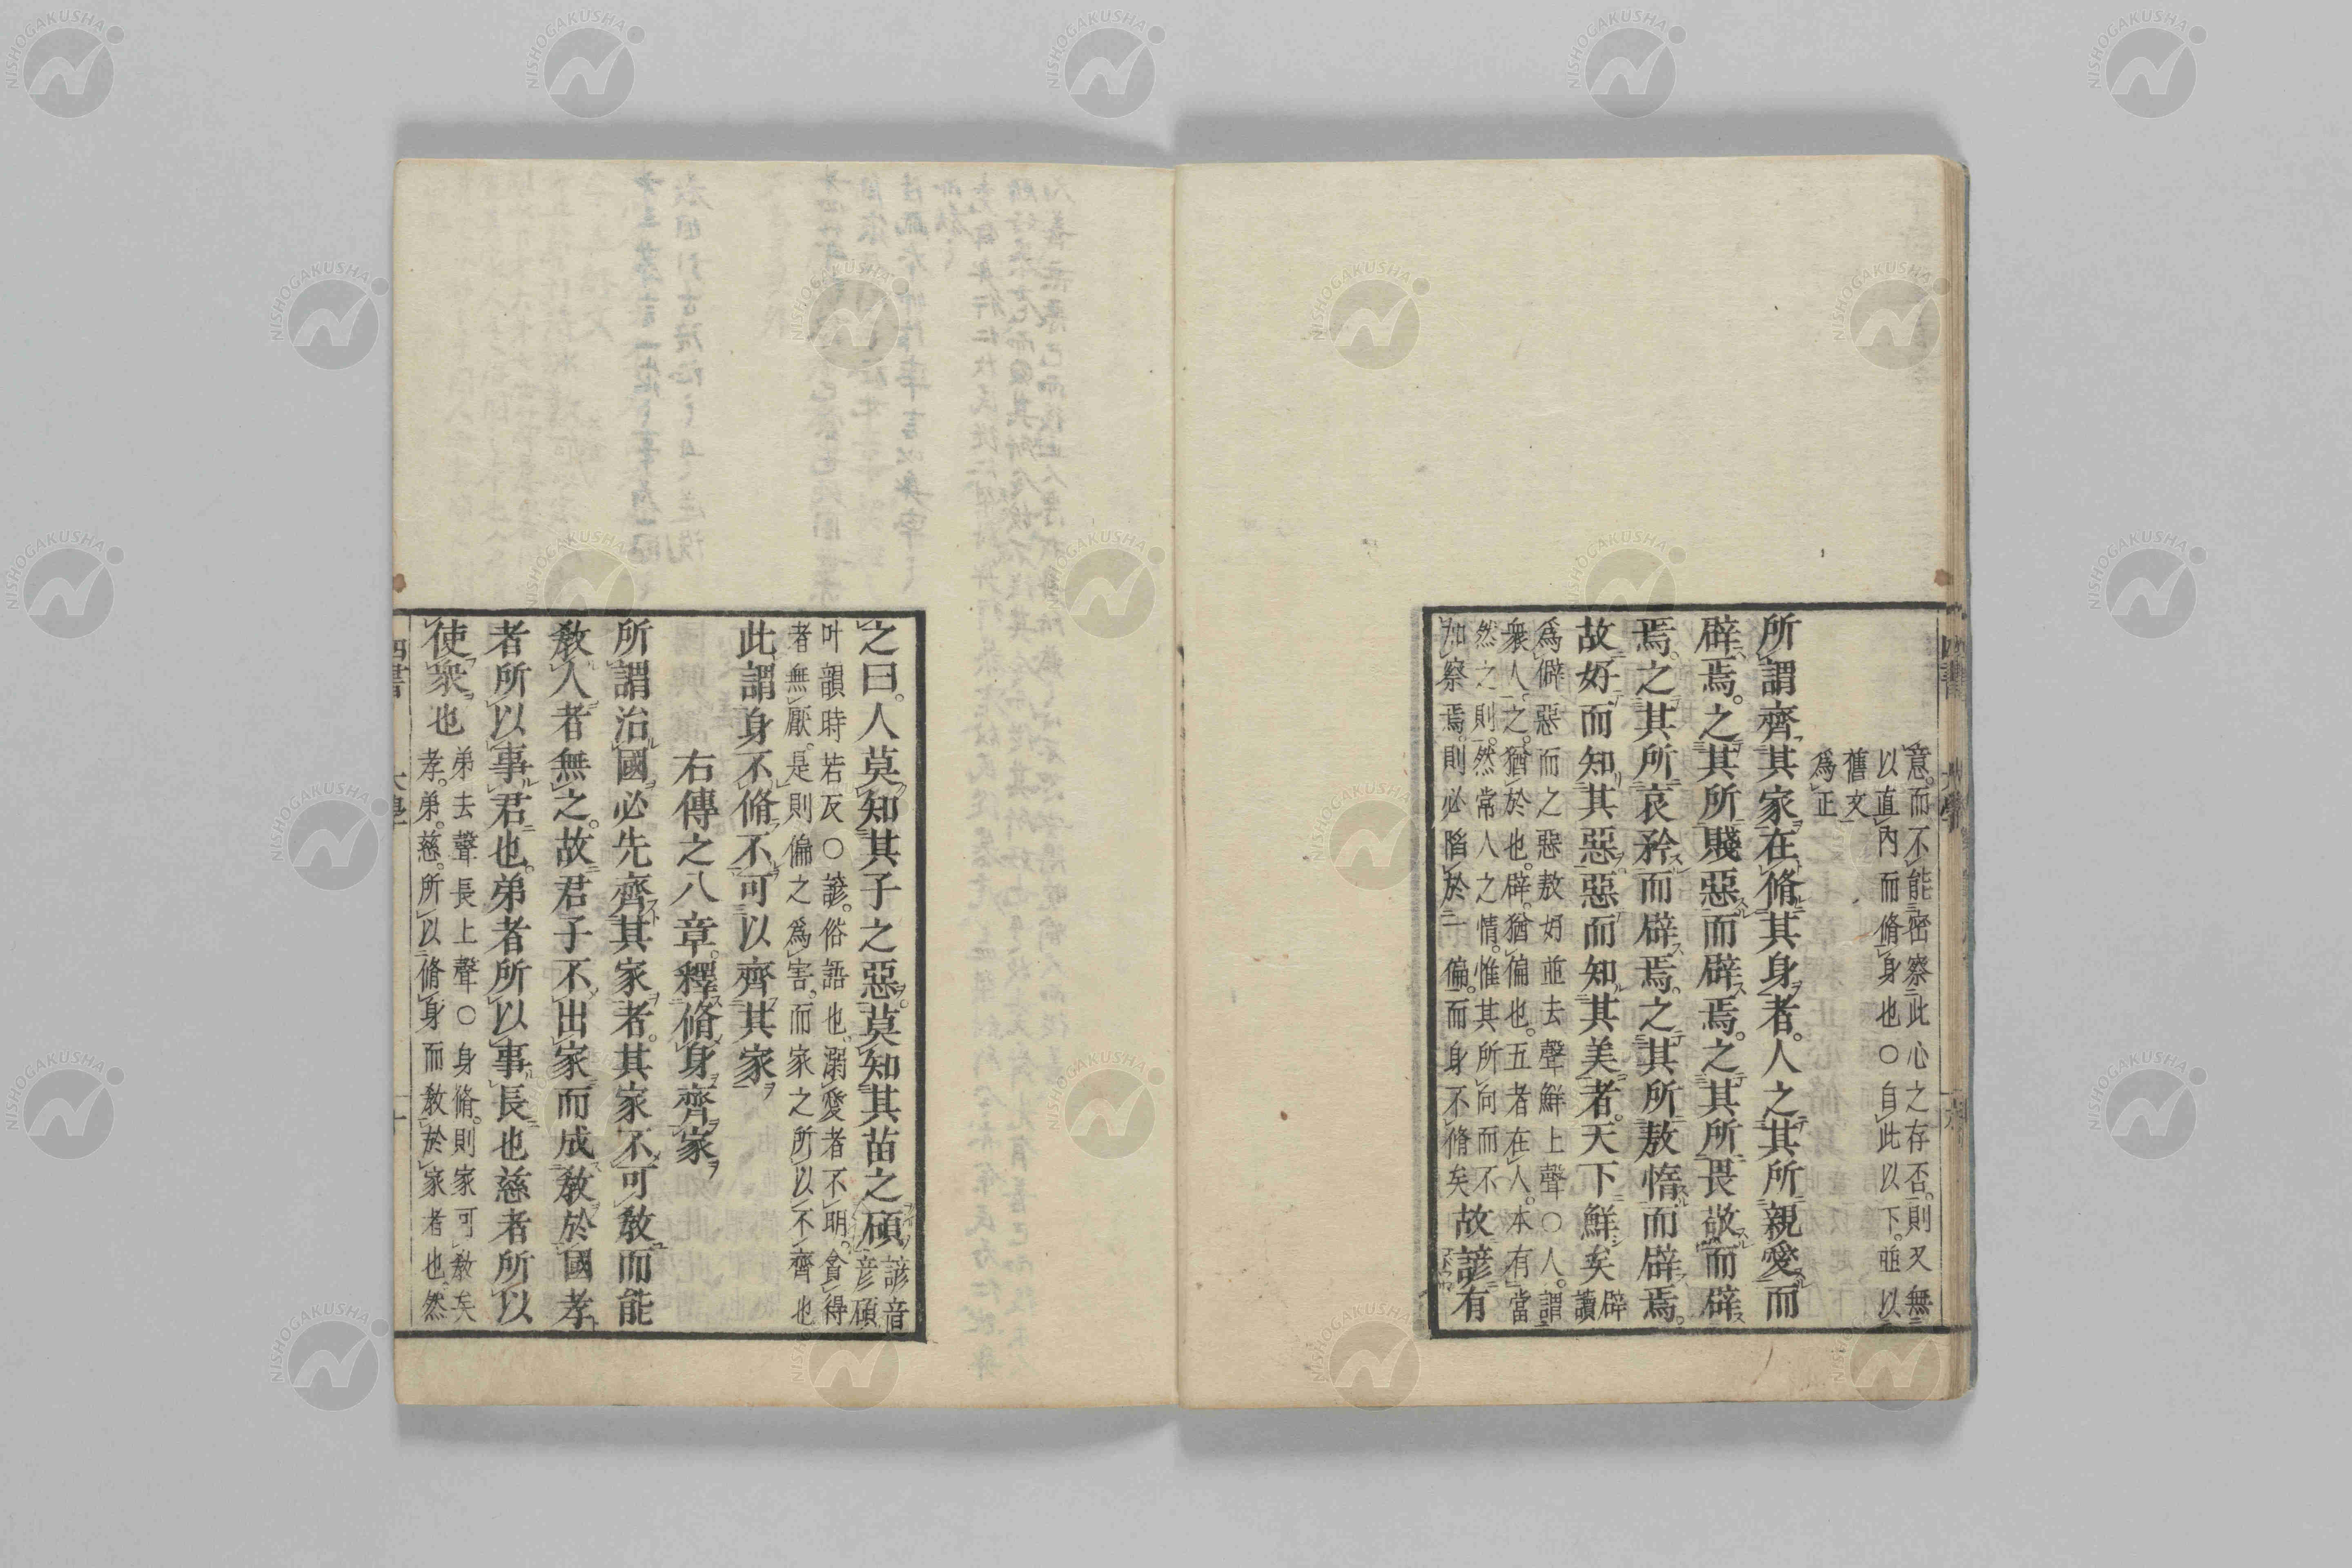 意。而不能密察此心之存否。則又無
以直內而脩身也○自此以下。並以
舊文
爲正
所謂齊其家在脩其身者。人之其所親愛而
辟焉。之其所賤惡而辟焉。之其所畏敬而辟
焉。之其所哀矜而辟焉。之其所敖惰而辟焉。
故好而知其惡惡而知其美者。天下鮮矣
辟
讀
爲僻惡而之惡敖好並去聲鮮上聲○人。謂
衆人。之。猶於也。辟。猶偏也。五者在人。本有當
然之則。然常人之情。惟其所向而不
加察焉。則必陷於一偏。而身不脩矣
故諺有
之曰。人莫知其子之惡。莫知其苗之碩
諺音
彦碩
叶韻時若反○諺。俗語也。溺愛者不明。貪得
者無厭。是則偏之爲害。而家之所以不齊也
此謂身不脩不可以齊其家
右傳之八章。釋脩身齊家
所謂治國必先齊其家者。其家不可敎而能
敎人者無之。故君子不出家而成敎於國孝
者所以事君也。弟者所以事長也慈者所以
使衆也
弟去聲長上聲○身脩。則家可敎矣
孝。弟。慈。所以脩身而敎於家者也。然
四書
大學
NISHOGAKUSHA